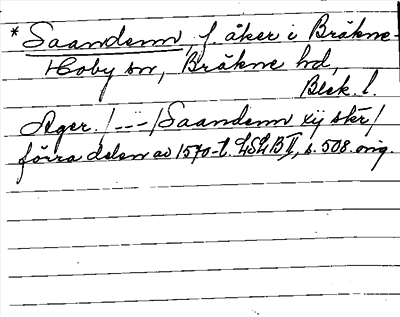 * Saandenn, f. åker i Bräkne-
Hoby sn, Bräkne hd,
Blek. l.
Ager. /---/ Saandenn xij skr/
förra delen av 1570-t. LSLB II, s. 508. orig.